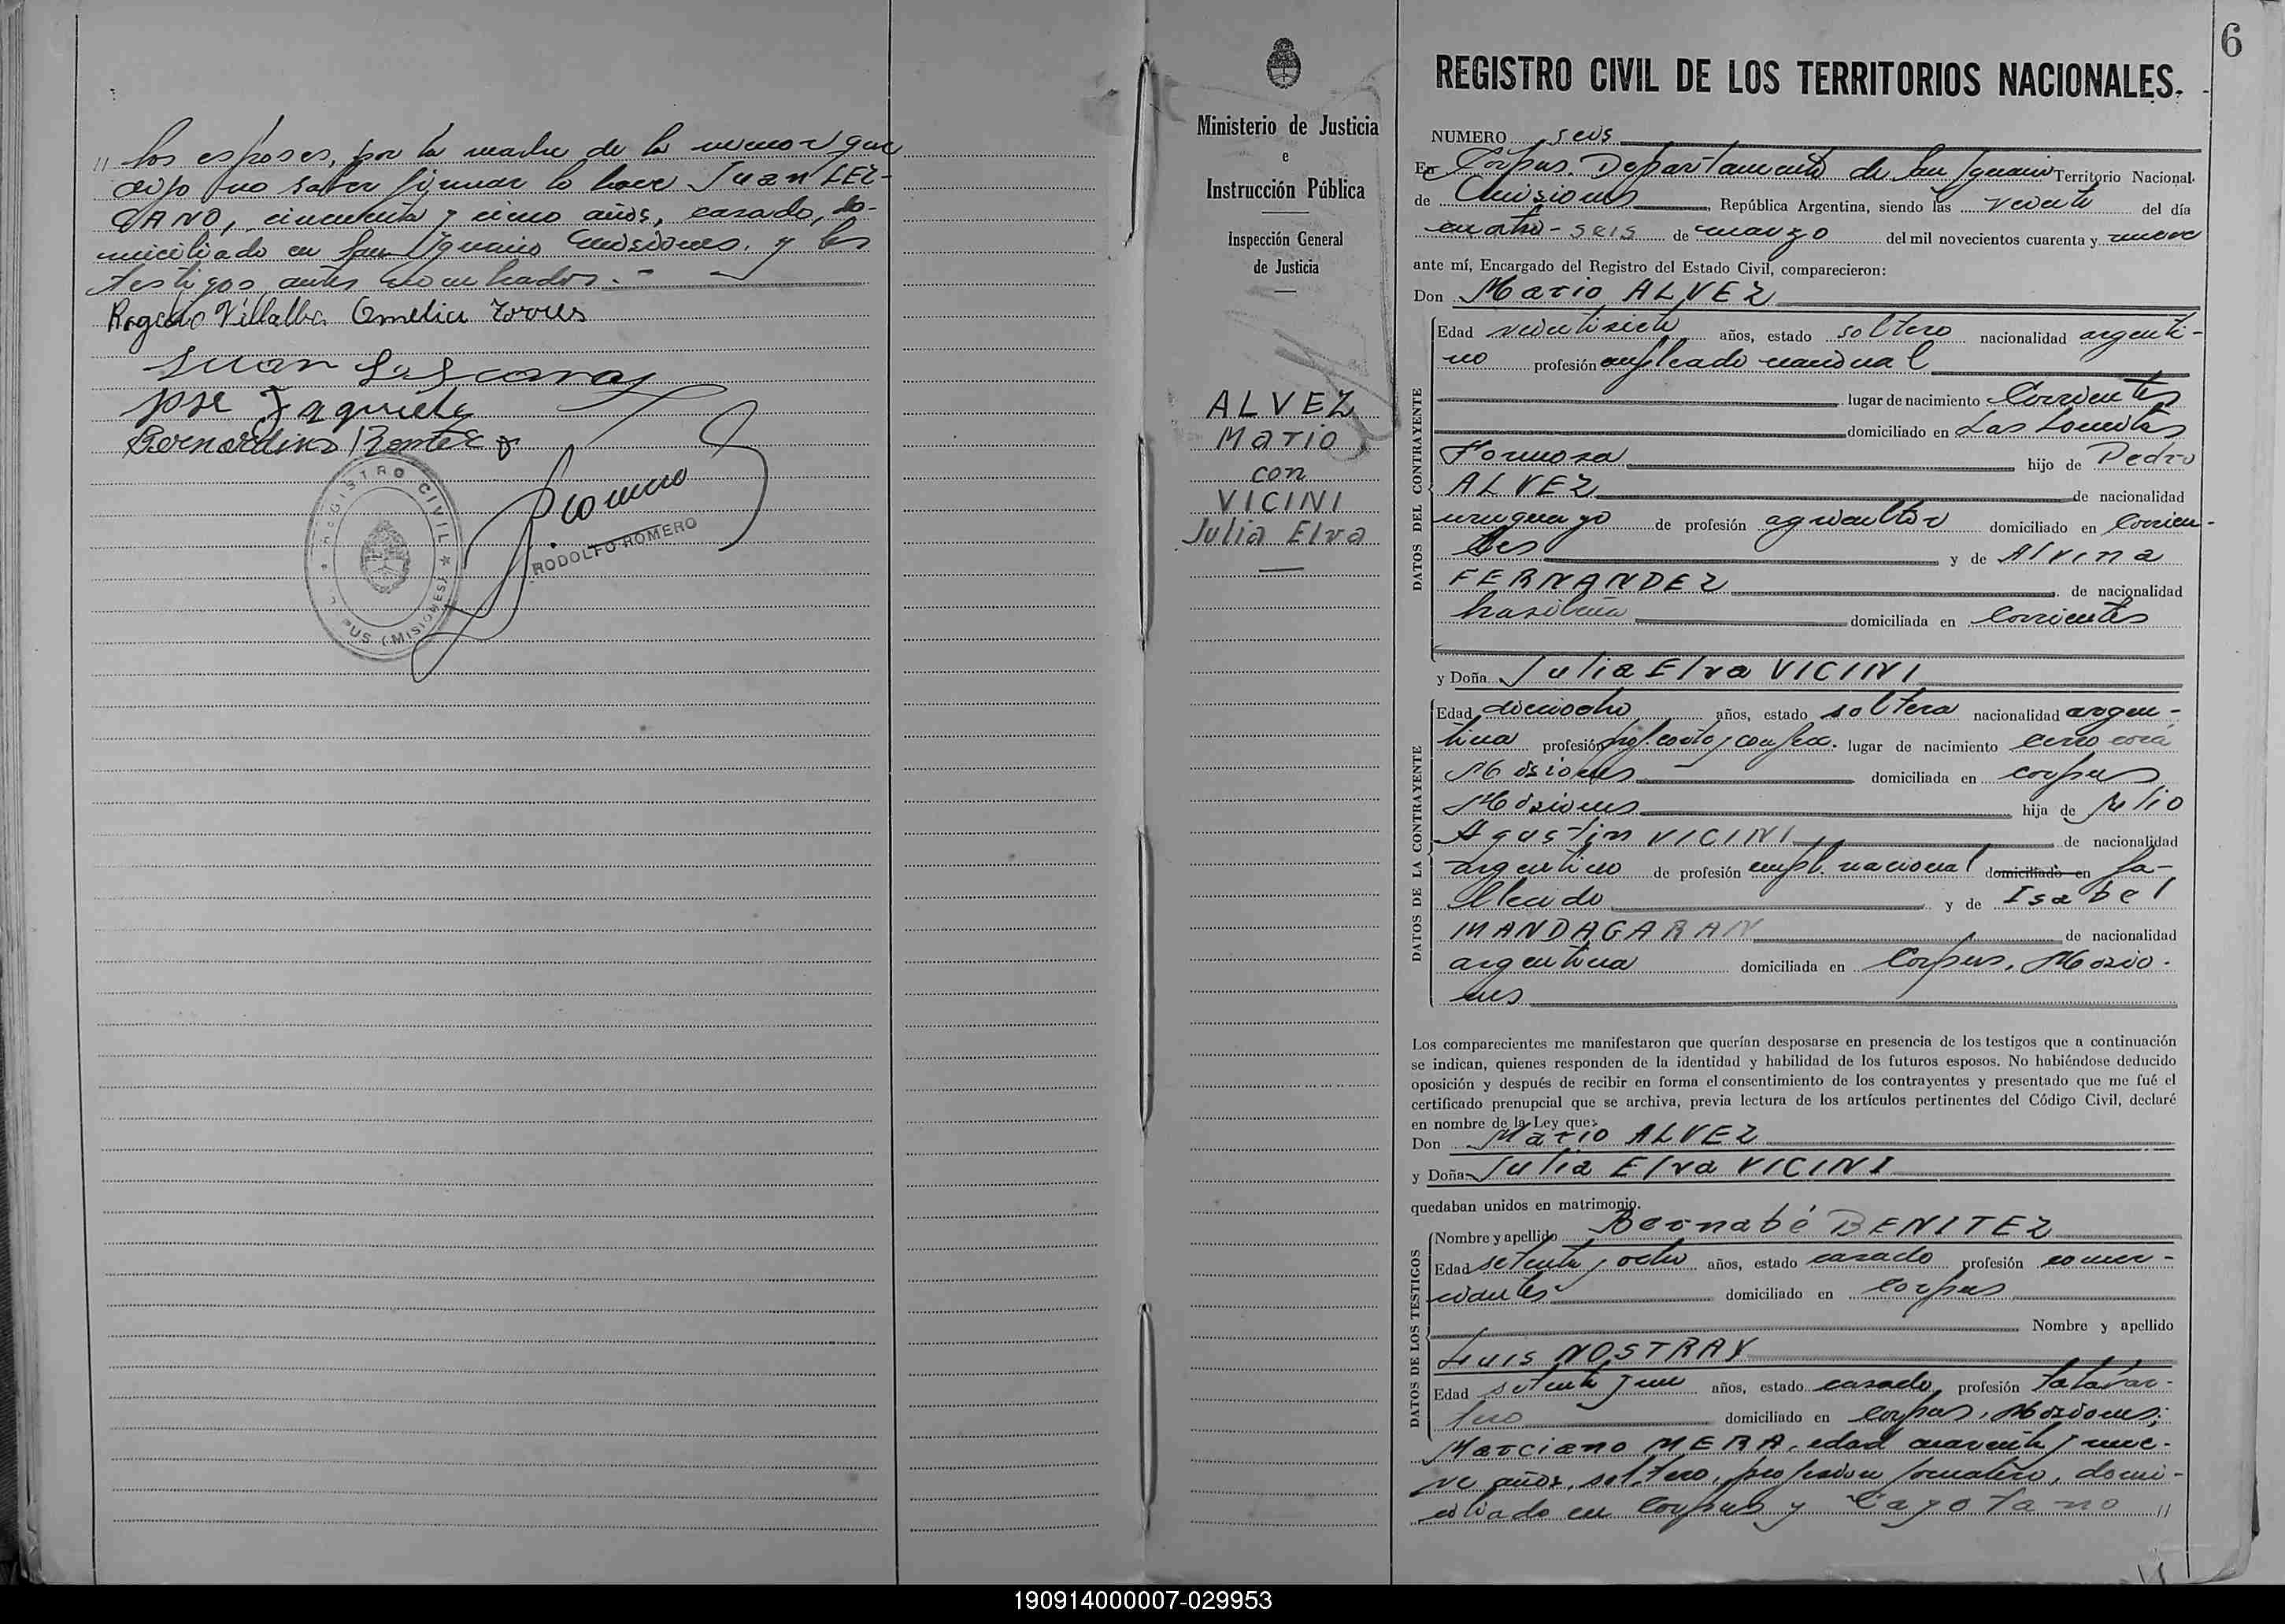 " los esposos, por la madre de la menor que
dijo no saber firmar lo hace Juan LEZ-
CANO, cincuenta y cinco años, casado, do-
miciliado en San Ignacio Misiones, y los
testigos antes nombrados.-
Rogelio Villalba Omelia Torres
Juan Lescano
José
Bernardino Benitez
REGISTRO CIVIL
PUS (MISIONES)
RODOLFO ROMERO
Ministerio de Justicia
e
Instrucción Pública
Inspección General
de Justicia
ALVEZ
Mario
con
VICINI
Julia Elva
6
REGISTRO CIVIL DE LOS TERRITORIOS NACIONALES.
NUMERO seis
En Corpus. Departamento de San Ignacio Territorio Nacional
de Misiones, República Argentina, siendo las veinte del día
seis de marzo del mil novecientos cuarenta y nueve
ante mí, Encargado del Registro del Estado Civil, comparecieron:
Don Mario ALVEZ
DATOS DEL CONTRAYENTE
Edad veintisiete años, estado soltero nacionalidad argenti-
no profesión empleado nacional
lugar de nacimiento Corrientes
domiciliado en Las Lomitas
Formosa hijo de Pedro
ALVEZ de nacionalidad
uruguayo de profesión agricultor domiciliado en Corrien-
tes y de Alvina
FERNANDEZ de nacionalidad
brasileña domiciliada en Corrientes
y Doña Julia Elva VICINI
DATOS DE LA CONTRAYENTE
Edad dieciocho años, estado soltera nacionalidad argen-
tina profesión prof. corte y confecc. lugar de nacimiento Cerro Corá
Misiones domiciliada en Corpus
Misiones hija de Julio
Agustin VICINI de nacionalidad
argentino de profesión empl. nacional domiciliado en fa-
llecido y de Isabel
MANDAGARAN de nacionalidad
argentina domiciliada en Corpus, Misio-
nes
Los comparecientes me manifestaron que querían desposarse en presencia de los testigos que a continuación
se indican, quienes responden de la identidad y habilidad de los futuros esposos. No habiéndose deducido
oposición y después de recibir en forma el consentimiento de los contrayentes y presentado que me fué el
certificado prenupcial que se archiva, previa lectura de los artículos pertinentes del Código Civil, declaré
en nombre de la Ley que:
Don Mario ALVEZ
y Doña Julia Elva VICINI
quedaban unidos en matrimonio.
DATOS DE LOS TESTIGOS
Nombre y apellido Bernabé BENITEZ
Edad setenta y ocho años, estado casado profesión comer-
ciante domiciliado en Corpus
Nombre y apellido
Luis NOSTRAY
Edad setenta y un años, estado casado profesión talabar-
tero domiciliado en Corpus, Misiones;
Marciano MERA, edad cuarenta y nue-
ve años, soltero, profesion jornalero, domi-
ciliado en Corpus y Cayetano "
190914000007-029953